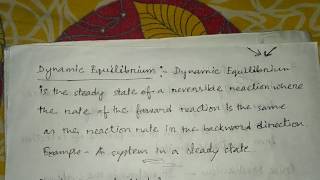 Dynamic Equilibrium :- Dynamic Equilibrium
is the steady state of a reversible reaction where
the rate of the forward reaction is the same
as the reaction rate in the backward direction
Example - A system in a steady state